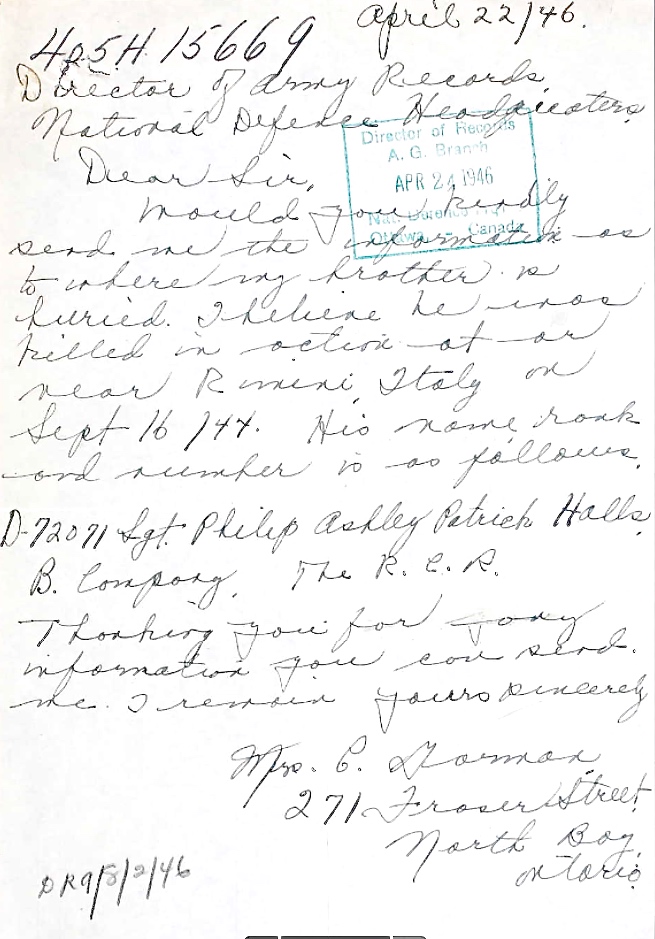 April 22/46.
405.H.15669
Director of Army Records,
National Defence Headquaters,
Director of Records
A. G. Branch
APR 24 1946
Nat. Defence Hqr.
Ottawa - Canada
Dear Sir,
Would you kindly
send me the information as
to where my brother is
buried. I believe he was
killed in action at or
near Rimini, Italy on
Sept 16/44. His name rank
and number is as follows,
D-72071 Sgt. Philip Ashley Patrick Halls,
B. Company, The R. C. R.
Thanking you for any
information you can send.
me. I remain yours sincerely
Mrs. C. Gorman
271 Fraser Street,
North Bay,
Ontario
DR9/8/2/46